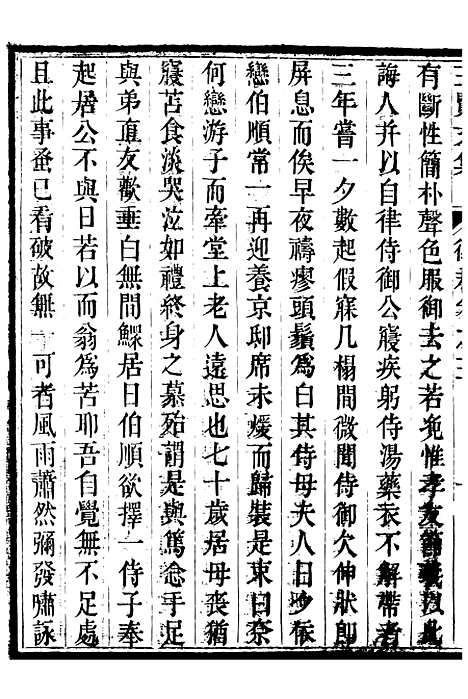 有斷性簡朴聲色服御去之若浼惟孝友節義以此
誨人并以自律侍御公寢疾躬侍湯藥衣不解帶者
三年嘗一夕數起假寐几榻間微聞侍御欠伸狀卽
屏息而俟早夜禱瘳頭鬚爲白其侍母夫人日夕依
戀伯順常一再迎養京邸席未煖而歸裝是束曰奈
何戀游子而牽堂上老人遠思也七十歲居母喪猶
寢苫食淡哭泣如禮終身之慕殆謂是與篤念手足
與弟直友歡垂白無間鰥居日伯順欲擇一侍子奉
起居公不與曰若以而翁爲苦耶吾自覺無不足處
且此事蚤已看破故無一可者風雨蕭然彌發嘯詠